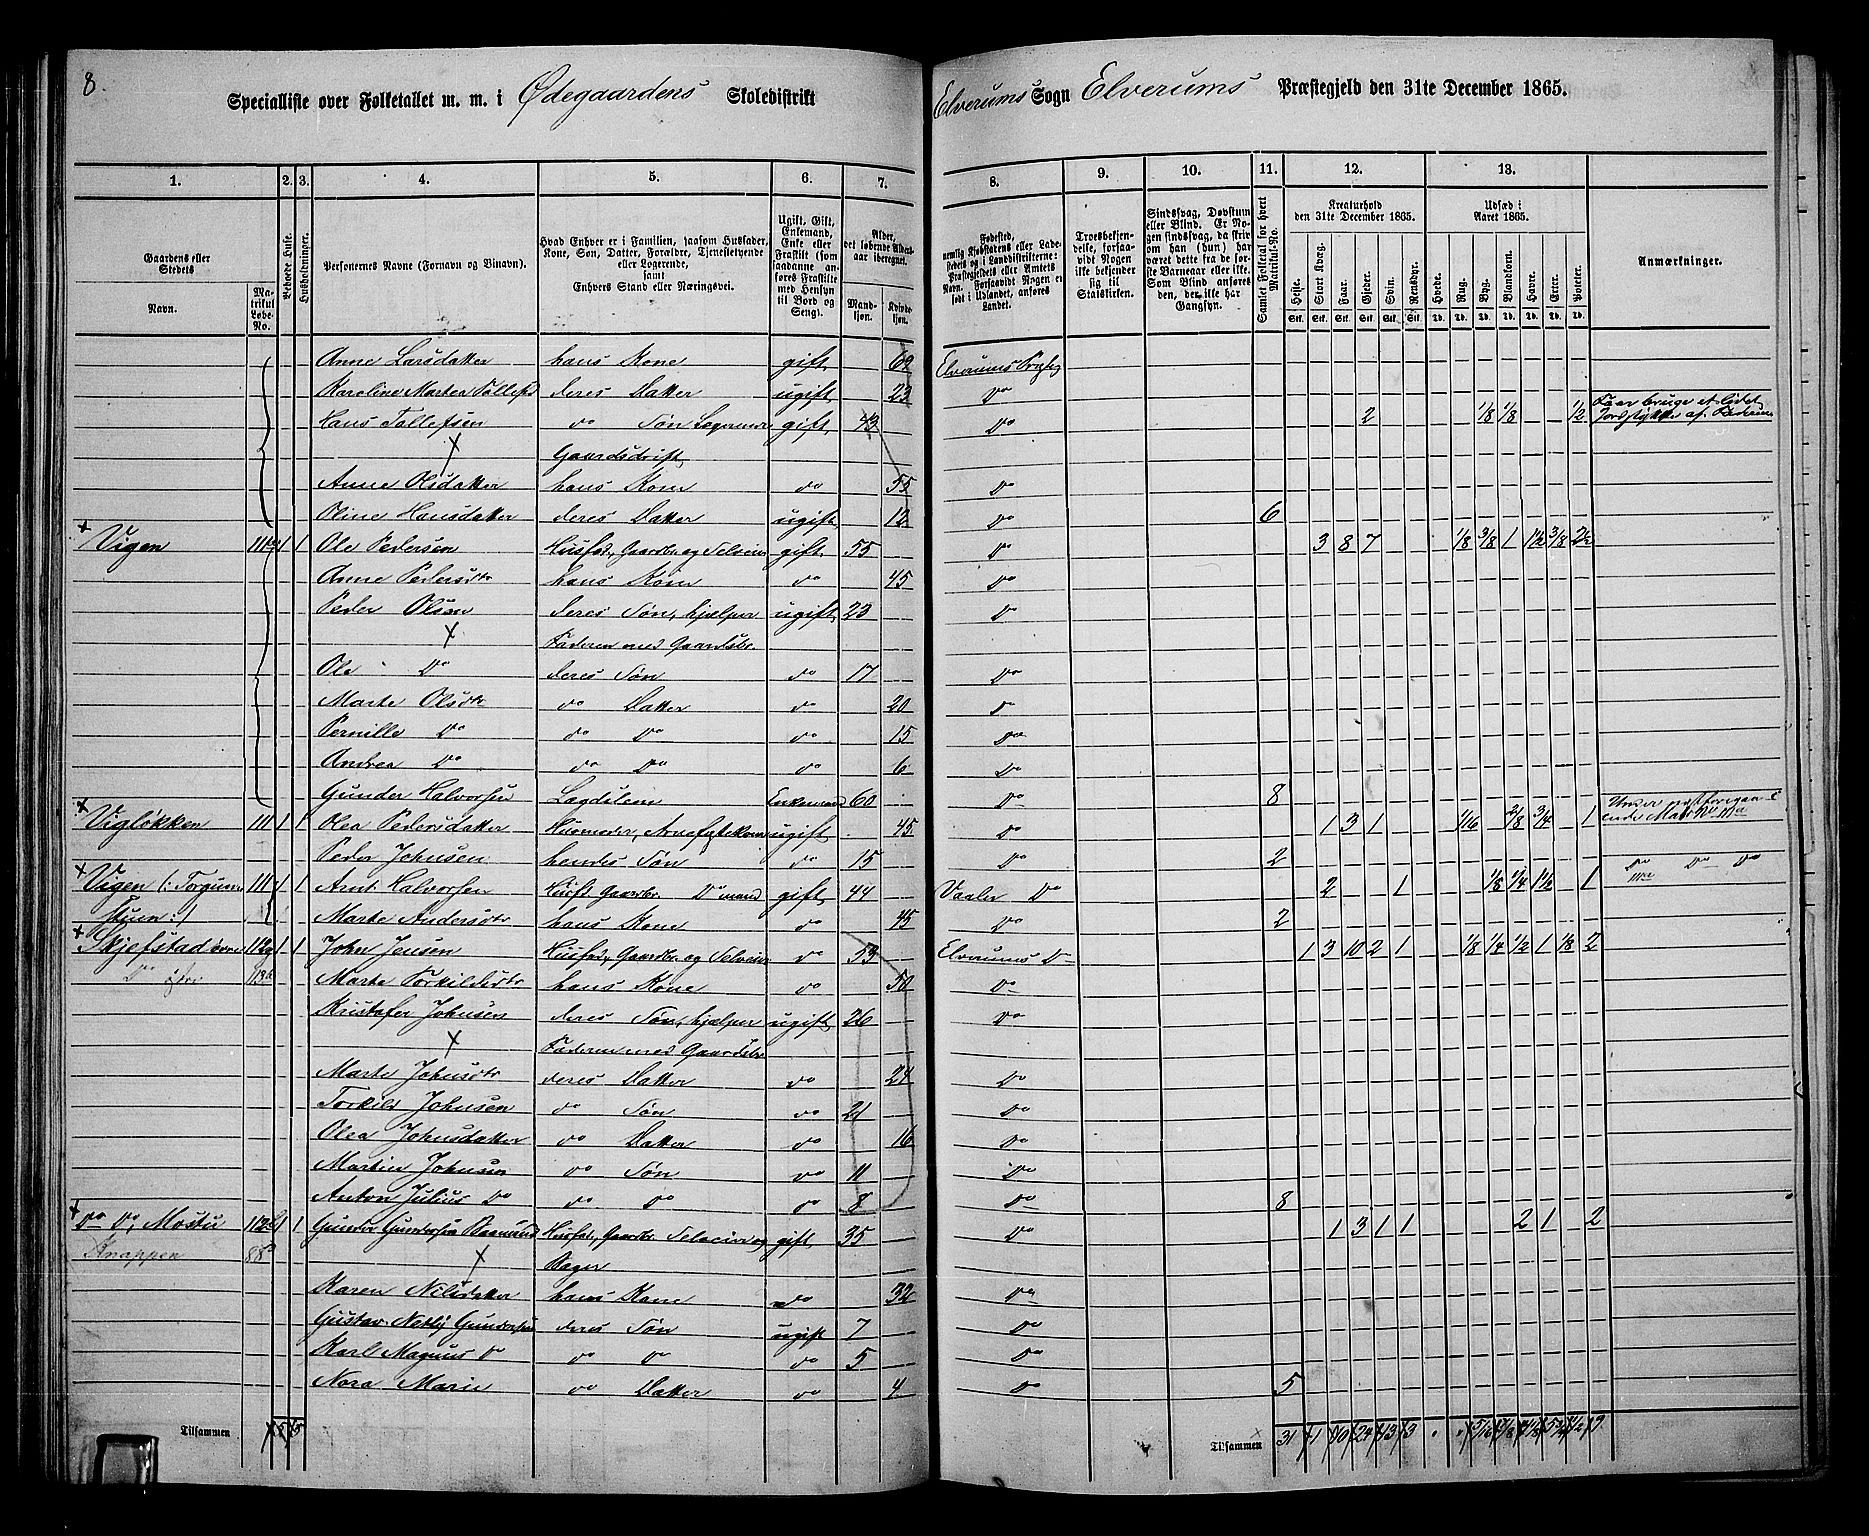 8.
Specialliste over Folketallet m. m. i Ødegaardens Skoledistrikt Elverums Sogn Elverums Præstegjeld den 31te December 1865.
1. 2. 3. 4. 5. 6. 7. 8. 9. 10. 11. 12. 13.
Gaardens eller Stedets
Navn.
Matrikul Løbe-No.
Beboede Huse.
Husholdninger.
Personernes Navne (Fornavn og Tilnavn).
Hvad Enhver er i Familien, saasom Husfader, Kone, Søn, Datter, Forældre, Tjenestetyende eller Logerende, samt
Enhvers Stand eller Næringsvei.
Ugift, Gift, Enkemand, Enke eller Fraskilt (som saadanne anføres Fraskilte med Hensyn til Bord og Seng).
Alder, det løbende Alders-aar iberegnet.
Mand-kjøn. Kvinde-kjøn.
Fødested, nemlig Kjøbstadens eller Ladestedets og i Landdistrikterne: Præstegjeldets eller Amtets Navn. Forsaavidt Nogen er født i Udlandet, anføres Landet.
Troesbekjendelse, forsaavidt Nogen ikke bekjender sig til Statskirken.
Sindssvag, Døvstum eller Blind. Er Nogen sindssvag, da skriv om han (hun) har været dette fra de første Barneaar eller ikke. Som Blind anføres den, der ikke har Gangsyn.
Samlet Folketal for hvert Matrikul-No.
Kreaturhold den 31te December 1865.
Heste. Stort Kvæg. Faar. Gjeder. Svin. Rensdyr.
Stk. Stk. Stk. Stk. Stk. Stk.
Udsæd i Aaret 1865.
Hvede. Rug. Byg. Blandkorn. Havre. Erter. Poteter.
Td. Td. Td. Td. Td. Td. Td.
Anmærkninger.
Anne Larsdatter hans Kone gift 62 Elverums
Karoline Marten deres Datter ugift 23 Do
Hans Tollefsen do Søn Logerende gift 43 Do 2 1/8 1/8 1/2
Gaardsdrift
Anne Olsdatter hans Kone do 55 Do
Oline Hansdatter deres Datter ugift 12 Do 6
Vigen 111 1 1 Ole Pedersen Husfad, Gaardbr og Selveier gift 55 Do 3 8 7 1/8 3/8 1 1 1/2 3/8
Anne Pedersdtr hans Kone do 45 Do
Peder Olsen deres Søn, hjælper ugift 23 Do
Faderen med Gaardsbr.
Ole Do deres Søn do 17 Do
Marte Olsdtr do Datter do 20 Do
Pernille Do do Do do 15 Do
Andrea Do do Do do 6 Do
Gunder Halvorsen Lægdslem Enkemand 60 Do 8
Vigløkken 111 1 1 Olea Pedersdatter Husmoder, ugift 45 Do 1 3 1 1/16 2/8 3/4 1
Peder Johnsen hendes Søn do 15 Do 2
Vigen 111 1 1 Arnt Halvorsen Husf. Gaardbr. Do gift 44 Vaaler Do 2 1 1/8 1/4 1 1/2 1 Do Do Do
Marte Andersdtr hans Kone do 45 Do 2
Skjefstad øvre 112a 1 1 John Jensen Husfad, Gaardbr. og Selveier do 53 Elverums Do 1 3 10 2 1 1/8 1/4 1/2 1 1/8 2
Marte Torkildsdtr hans Kone do 50 Do
Kristofer Johnsen deres Søn, hjælper ugift 26 Do
Faderen med Gaardsbr
Marte Johnsdtr deres Datter do 24 Do
Torkild Johnsen do Søn do 21 Do
Olea Johnsdatter do Datter do 16 Do
Martin Johnsen do Søn do 11 Do
Anton Julius Do do Do do 8 Do 8
Do Do, Mostu 112 1 1 Gunder Gundersen Husfad, Gaardbr. Selveier og gift 35 Do 1 3 1 1 2 1 2
Knappen 88
Bager
Karen Nilsdatter hans Kone do 32 Do
Gustav Gundersen deres Søn ugift 7 Do
Karl Magnus Do do Do do 5 Do
Nora Marie do Datter do 4 Do 5
Tilsammen 5 5 Tilsammen 31 1 10 24 13 3